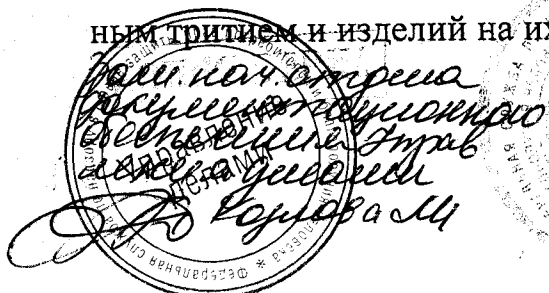 ным тритием и изделий на их
Зам. нач. отдела
документационного
обеспечения Управ
ления делами
Козлова М
Управление
делами
Федеральная